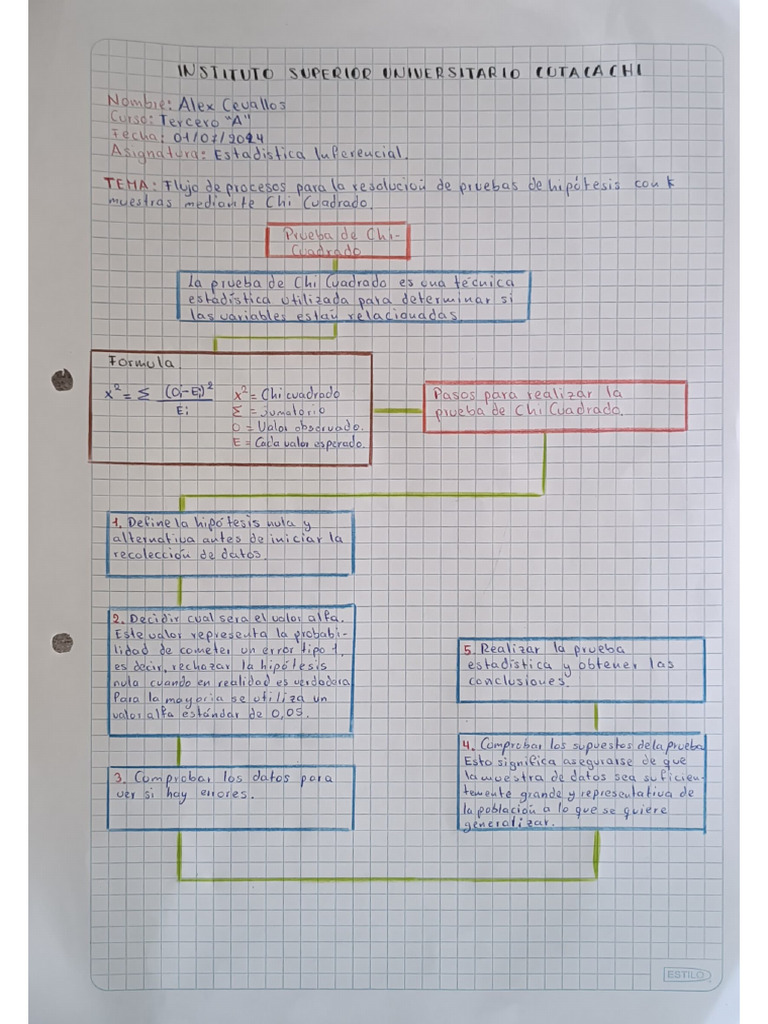 INSTITUTO SUPERIOR UNIVERSITARIO COTACACHI
Nombre: Alex Cevallos
Curso: Tercero "A"
Fecha: 01/07/2024
Asignatura: Estadistica Inferencial.
TEMA: Flujo de procesos para la resolución de pruebas de hipótesis con k
muestras mediante Chi Cuadrado.
Prueba de Chi-
Cuadrado
La prueba de Chi Cuadrado es una técnica
estadística utilizada para determinar si
las variables están relacionadas.
Formula
x² = Σ (Oi - Ei)² / Ei
x² = Chi cuadrado
Σ = Sumatorio
O = Valor observado.
E = Cada valor esperado.
Pasos para realizar la
prueba de Chi Cuadrado.
1. Define la hipótesis nula y
alternativa antes de iniciar la
recolección de datos.
2. Decidir cual sera el valor alfa.
Este valor representa la probabi-
lidad de cometer un error tipo 1,
es decir, rechazar la hipótesis
nula cuando en realidad es verdadera
Para la mayoria se utiliza un
valor alfa estándar de 0,05.
3. Comprobar los datos para
ver si hay errores.
5. Realizar la prueba
estadística y obtener las
conclusiones.
4. Comprobar los supuestos de la prueba
Esto significa asegurarse de que
la muestra de datos sea suficien-
temente grande y representativa de
la población a lo que se quiere
generalizar.
ESTILO